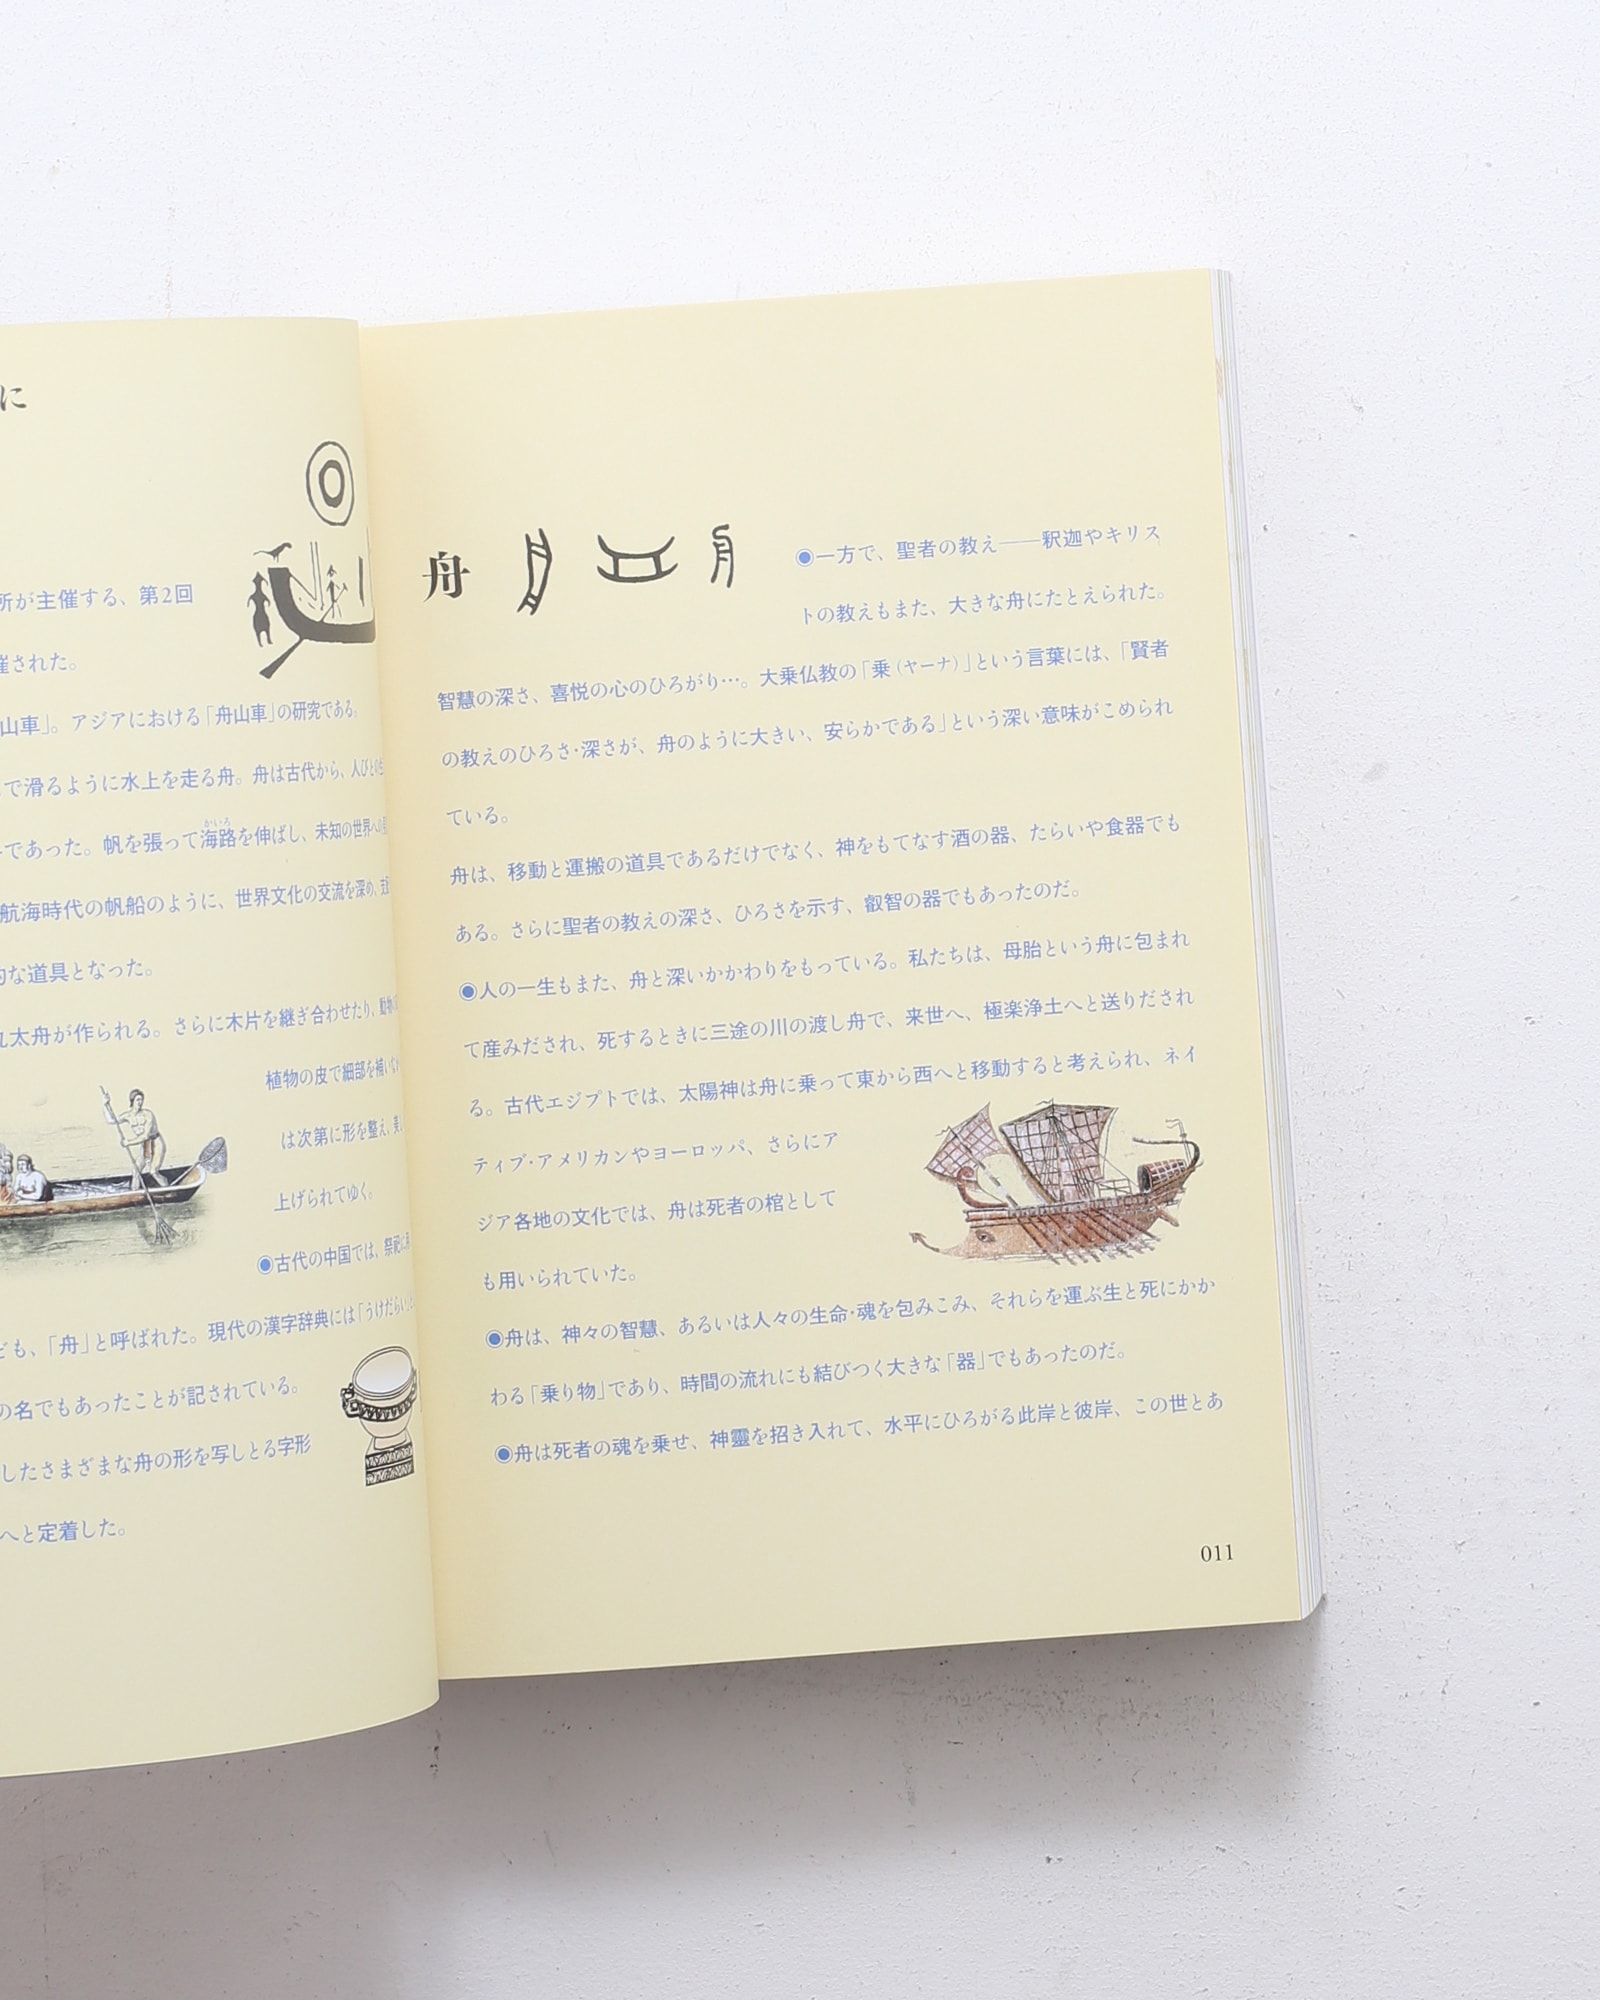 に
所が主催する、第2回
催された。
山車」。アジアにおける「舟山車」の研究である。
で滑るように水上を走る舟。舟は古代から、人びとの
であった。帆を張って海路を伸ばし、未知の世界への
かいろ
航海時代の帆船のように、世界文化の交流を深め、
的な道具となった。
丸太舟が作られる。さらに木片を継ぎ合わせたり、動物の
植物の皮で細部を補い
は次第に形を整え、
上げられてゆく。
◉古代の中国では、祭祀に
ども、「舟」と呼ばれた。現代の漢字辞典には「うけだらい」
の名でもあったことが記されている。
したさまざまな舟の形を写しとる字形
へと定着した。
舟
◉一方で、聖者の教え——釈迦やキリス
トの教えもまた、大きな舟にたとえられた。
智慧の深さ、喜悦の心のひろがり…。大乗仏教の「乗（ヤーナ）」という言葉には、「賢者
の教えのひろさ・深さが、舟のように大きい、安らかである」という深い意味がこめられ
ている。
舟は、移動と運搬の道具であるだけでなく、神をもてなす酒の器、たらいや食器でも
ある。さらに聖者の教えの深さ、ひろさを示す、叡智の器でもあったのだ。
◉人の一生もまた、舟と深いかかわりをもっている。私たちは、母胎という舟に包まれ
て産みだされ、死するときに三途の川の渡し舟で、来世へ、極楽浄土へと送りだされ
る。古代エジプトでは、太陽神は舟に乗って東から西へと移動すると考えられ、ネイ
ティブ・アメリカンやヨーロッパ、さらにア
ジア各地の文化では、舟は死者の棺として
も用いられていた。
◉舟は、神々の智慧、あるいは人々の生命・魂を包みこみ、それらを運ぶ生と死にかか
わる「乗り物」であり、時間の流れにも結びつく大きな「器」でもあったのだ。
◉舟は死者の魂を乗せ、神靈を招き入れて、水平にひろがる此岸と彼岸、この世とあ
011